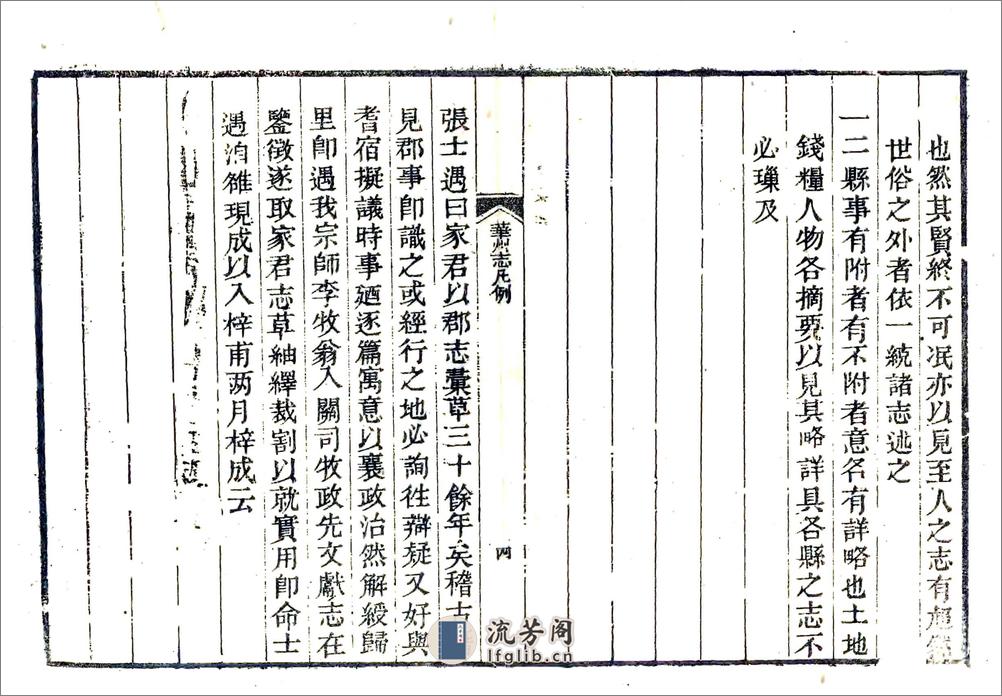 也然其賢終不可泯亦以見至人之志有超然
世俗之外者依一統諸志述之
一二縣事有附者有不附者意名有詳略也土地
錢糧人物各摘要以見其略詳具各縣之志不
必璅及
華州志凡例
四
張士遇曰家君以郡志橐草三十餘年矣稽古
見郡事卽識之或經行之地必詢徃辯疑又好與
耆宿擬議時事廼逐篇寓意以襄政治然解綬歸
里卽遇我宗師李牧翁入關司牧政先文獻志在
鑒徵遂取家君志草紬繹裁割以就實用卽命士
遇洎雒現成以入梓甫两月梓成云
流芳阁
lfglib.cn